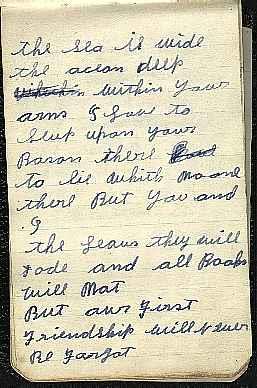 the sea is wide
the acean deep
within your
arms I love to
sleep upon your
Bason there
to lie whith no one
there But you and
I
the leaves they will
fade and all Books
will Mat
But our First
Friendship will Never
Be Forgot